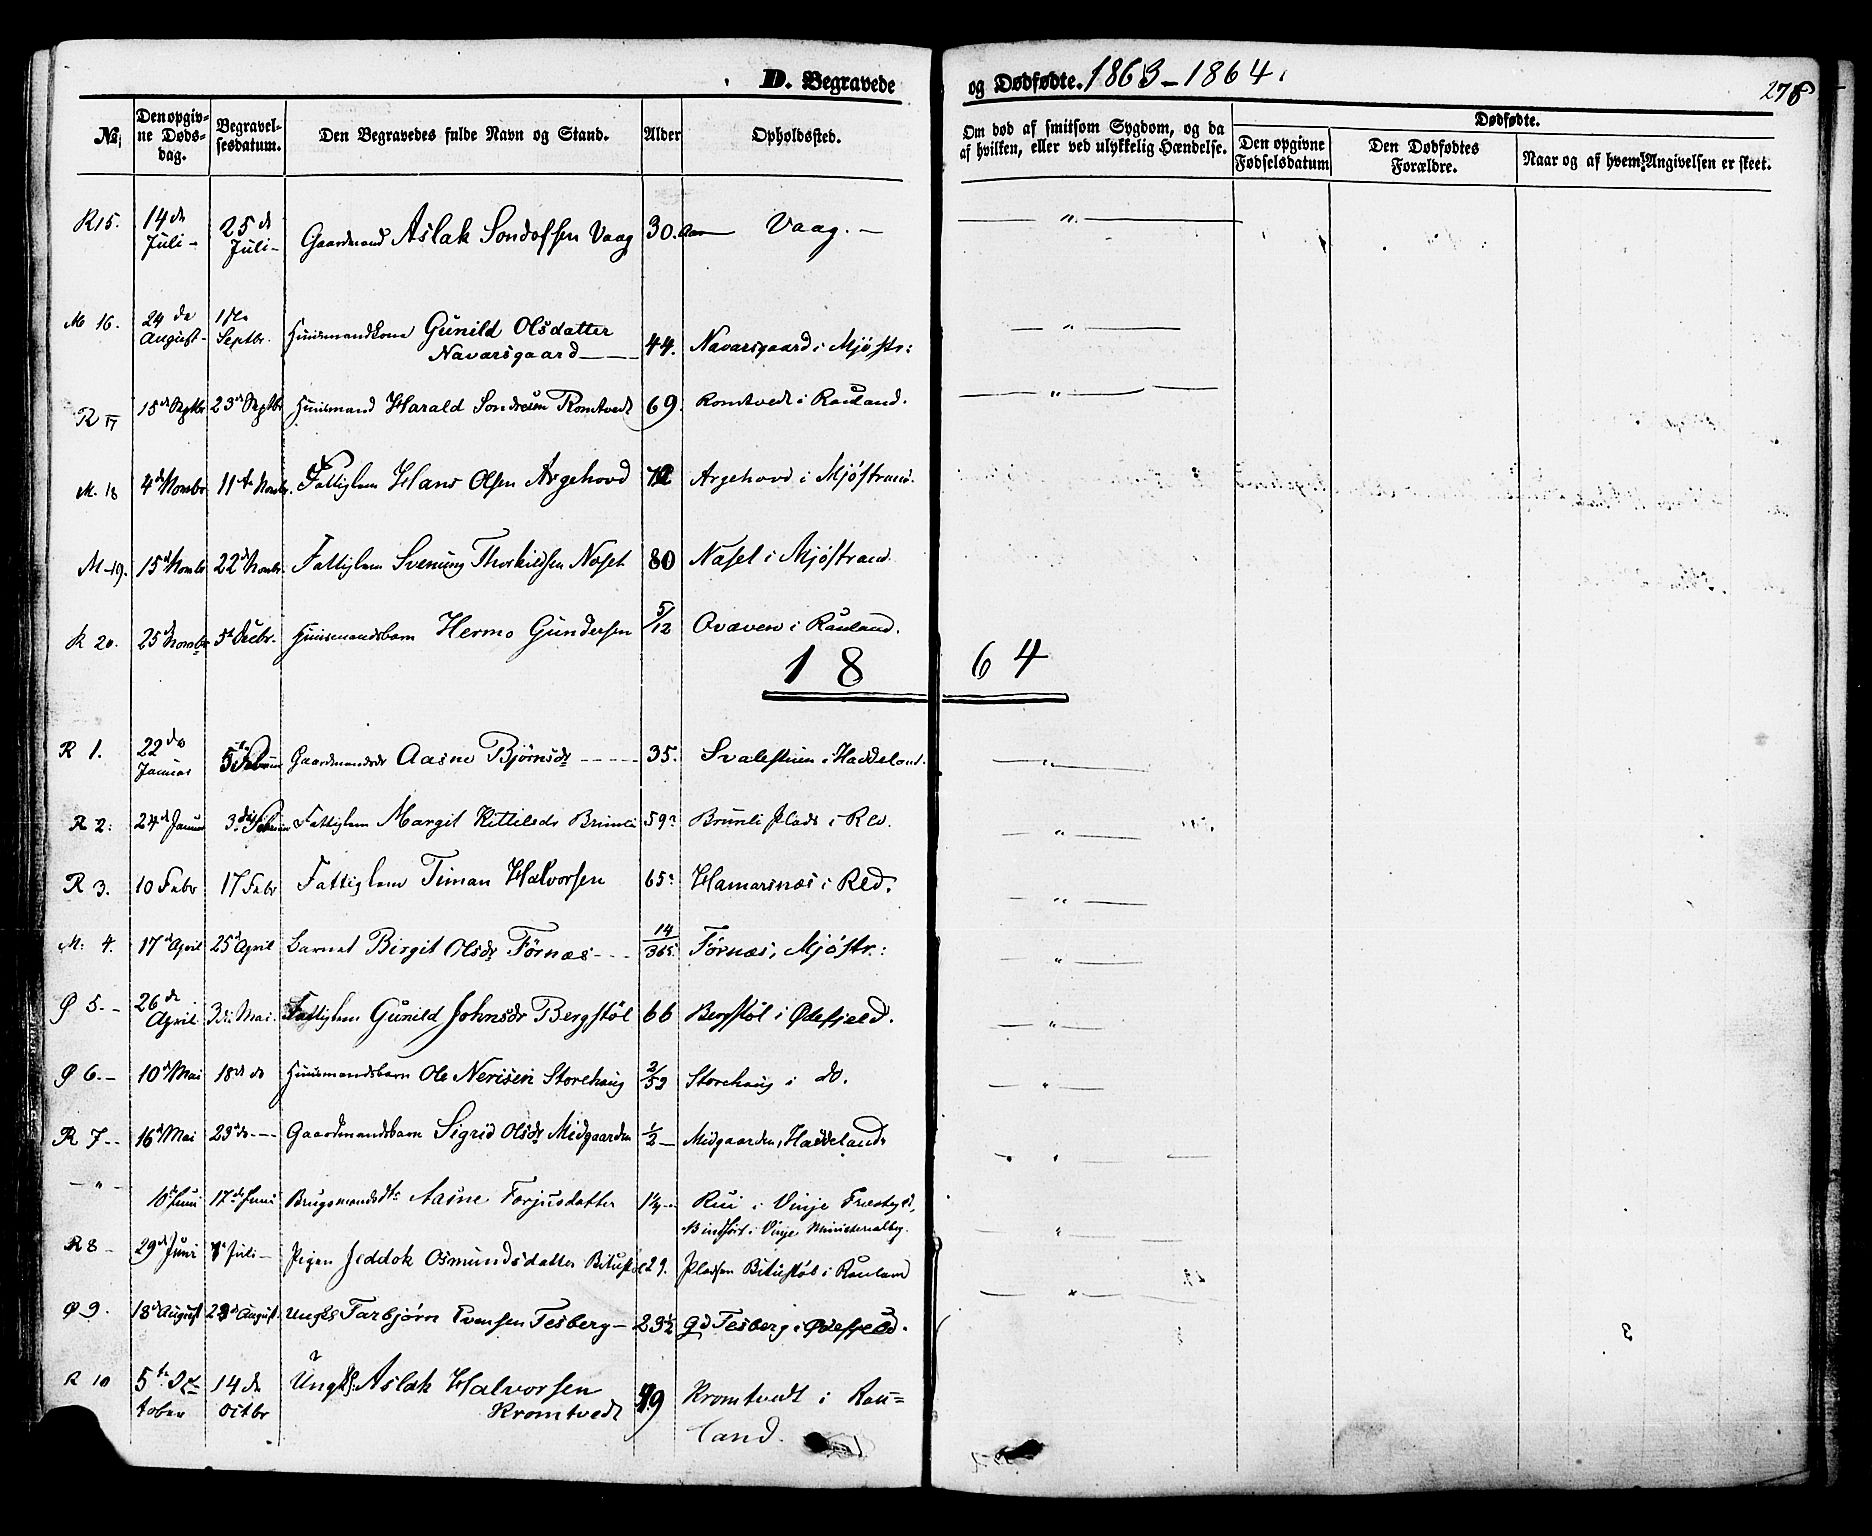 D. Begravede og Dødfødte. 1863-1864.
278
No.
Den opgivne Dødsdag.
Begravelsesdatum.
Den Begravedes fulde Navn og Stand.
Alder
Opholdssted.
Om død af smitsom Sygdom, og da af hvilken, eller ved ulykkelig Hændelse.
Dødfødte.
Den opgivne Fødselsdatum
Den Dødfødtes Forældre.
Naar og af hvem Angivelsen er skeet.
R 15. 14de Juli - 25de Juli - Gaardmand Aslak Vaag 30. Aar Vaag. - "
M 16. 24de August - Septbr. Huusmandkone Gunild Olsdatter
Navarsgaard 44. Navarsgaard i Mjøstr: "
R 17 15d Septbr 23d Septbr Huusmand Harald Romtvedt 69. Romtvedt i Rauland. "
M. 18 4d Novbr 11te Novbr. Fattiglem Hans Olsen Argehovd Argehovd i Mjøstrand.
M-19. 15d Novbr 22d Novbr. Fattiglem Svenung Thorkildsen Næset 80 Næset i Mjøstrand.
R 20. 25d Novbr 5t Decbr. Huusmandsbarn Hermo Gundersen 5/12 i Rauland.
1864
R 1. 22de Januar Gaardmandsdr Aasne Bjørnsdr 35. Svalestuen i Haddeland. "
R 2: 24d Januar Fattiglem Margit Kittilsdr Brunli 59 Brunli Plads i Rld. "
R 3. 10 Febr 17 Febr Fattiglem Timan Halvorsen 65 Hamarsnæs i Rld. "
M: 4. 17d April 25d April Barnet Birgit Olsdr Førnæs 14/365 Førnæs, Mjøstr.: "
Ø 5. - 26de April 3die Mai. Fattiglem Gunild Johnsdr Bergstøl 66 Bergstøl i Ødefjeld. "
Ø 6. - 10d Mai 18de do Huusmandsbarn Ole Nerisen Storehaug Storehaug i do. "
R 7 - 16d Mai 23d do Gaardmandsbarn Sigrid Olsdr Midgaarden 1/2 Midgaarden, Haddeland "
" 17de Juni Brugsmandsdtr Aasne Torjusdatter Rui i Vinje Præstegjd,
Indført i Vinje Ministerialbog. "
R 8 - 29d Juni Juli - Pigen Jeddok Osmundsdatter Bitustøl 29. Pladsen Bitustøl i Rauland "
Ø 9. 18d August August Ungkl Tarbjørn Evensen Tesberg 23 1/2 Gd Tesberg i Ødefjeld.
R 10 5te Octobe 14de Octbr Ungkl: Aslak Halvorsen
Kromtvedt Kromtvedt i Rau=
land.